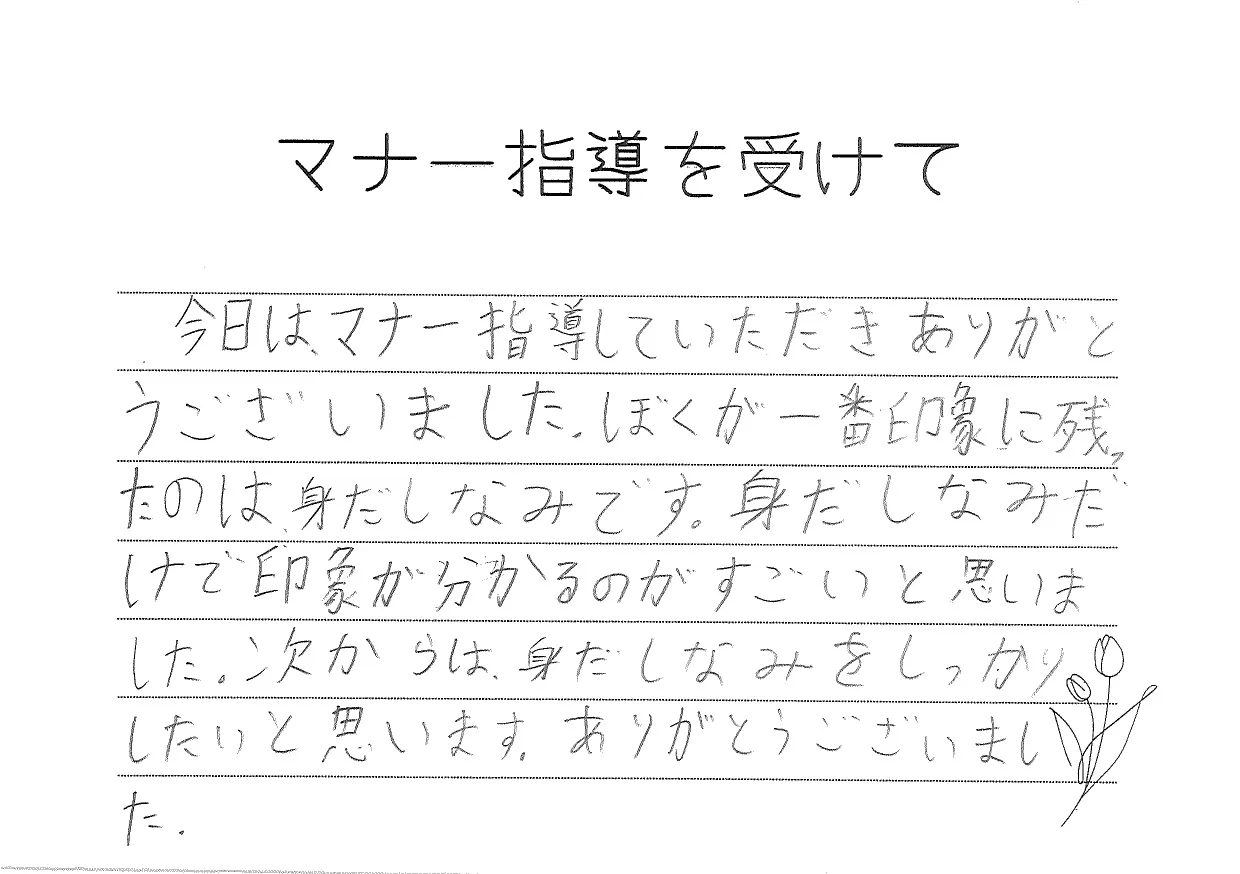 マナー指導を受けて
今日は、マナー指導していただきありがと
うございました。ぼくが一番印象に残っ
たのは、身だしなみです。身だしなみだ
けで印象が分かるのがすごいと思いま
した。次からは、身だしなみをしっかり
したいと思います。ありがとうございまし
た。